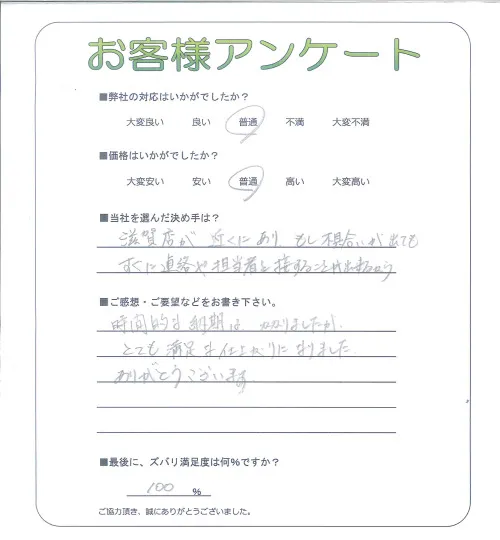 お客様アンケート
■弊社の対応はいかがでしたか？
大変良い 良い 普通 不満 大変不満
■価格はいかがでしたか？
大変安い 安い 普通 高い 大変高い
■当社を選んだ決め手は？
滋賀店が近くにあり、もし不具合いが出ても
すぐに連絡や担当者と接することが出来る
■ご感想・ご要望などをお書き下さい。
時間的な納期は かかりましたが、
とても満足な仕上がりに なりました。
ありがとうございます。
■最後に、ズバリ満足度は何％ですか？
100 ％
ご協力頂き、誠にありがとうございました。